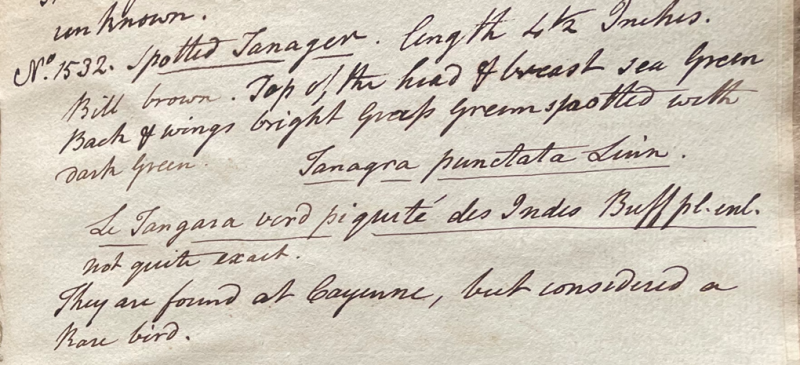 unknown.
No. 1532. Spotted Tanager. length 4½ Inches.
Bill brown. Top of the head & breast sea Green
Back & wings bright Grass Green spotted with
dark Green.
Tanagra punctata Linn.
Le Tangara verd piqueté des Indes Buff pl. enl.
not quite exact.
They are found at Cayenne, but considered a
Rare bird.